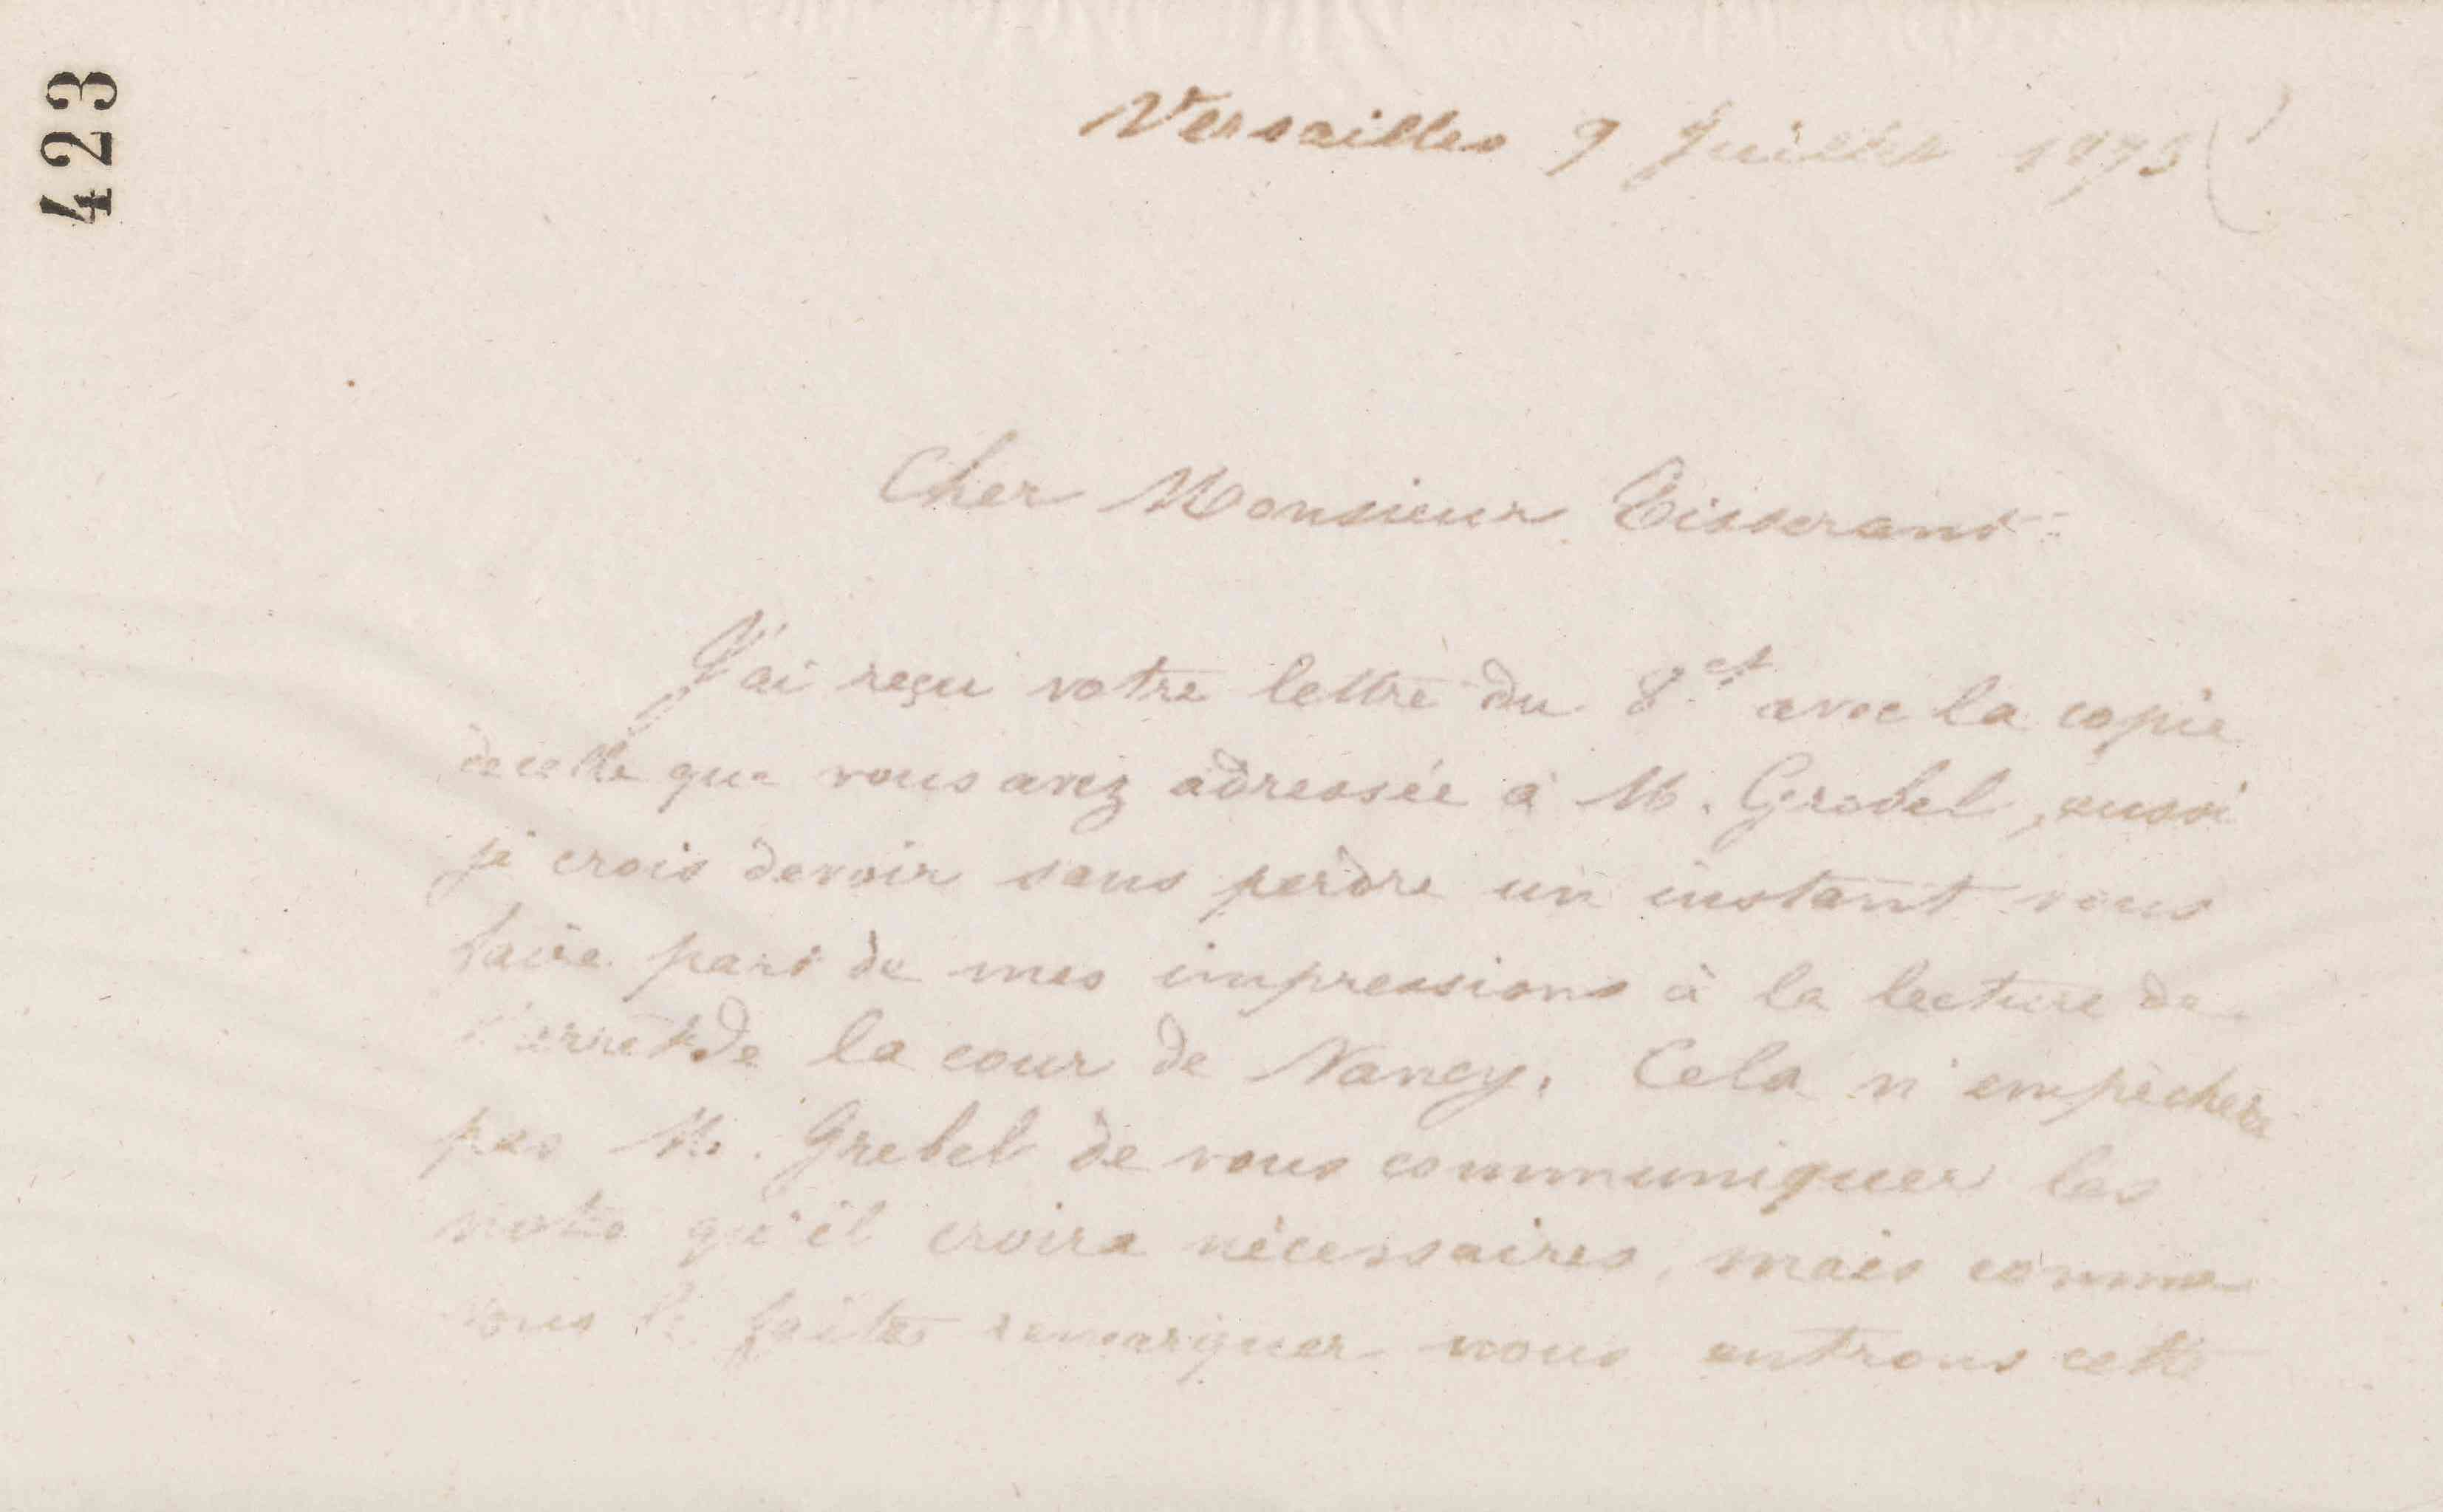 423
Versailles 9 Juillet 1873
Cher Monsieur Tisserant
J'ai reçu votre lettre du 8 ct avec la copie
de celle que vous avez adressée à M. Grebel, aussi
je crois devoir sans perdre un instant vous
faire part de mes impressions à la lecture de
l'arrêt de la cour de Nancy. Cela n'empêchera
pas M. Grebel de vous communiquer les
notes qu'il croira nécessaires, mais comme
vous le faites remarquer nous entrons cette